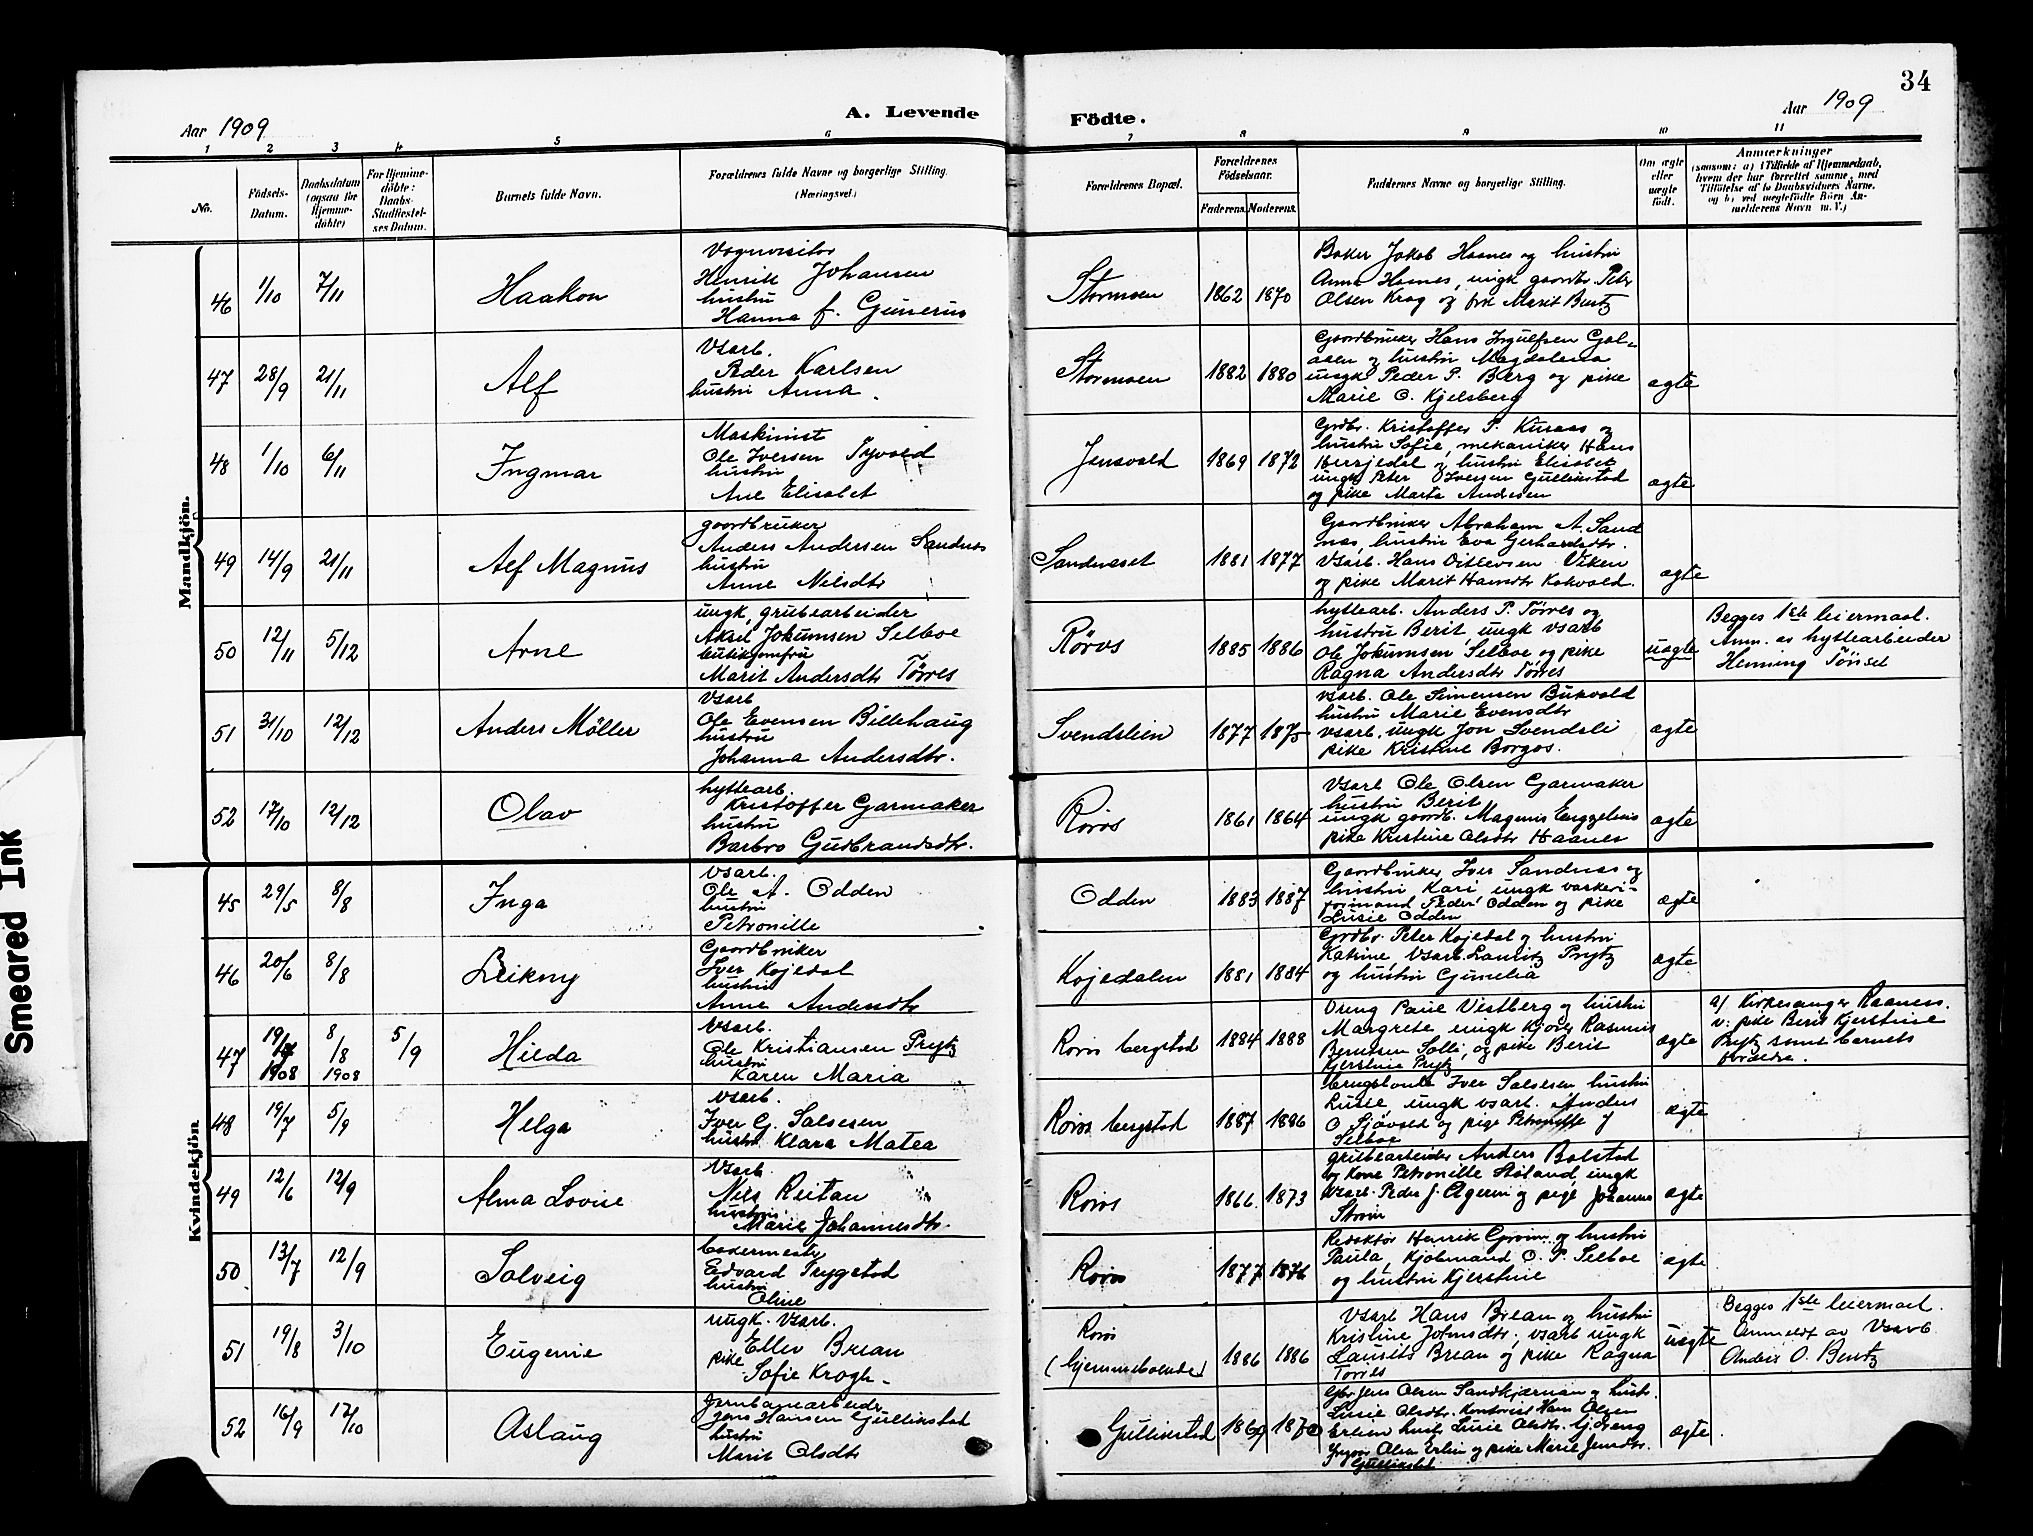 34
A. Levende Födte.
Aar 1909
Aar 1909
1 2 3 4 5 6 7 8 9 10 11
No.
Födsels-
Datum.
Daabsdatum
(ogsaa for
Hjemme-
döbte)
For Hjemme-
döbte:
Daabs-
Stadfæstel-
ses Datum.
Barnets fulde Navn.
Forældrenes fulde Navne og borgerlige Stilling.
(Næringsvei.)
Forældrenes Bopæl.
Forældrenes
Födselsaar.
Faderens. Moderens.
Faddernes Navne og borgerlige Stilling.
Om ægte
eller
uægte
födt.
Anmærkninger
(saasom: a) i Tilfælde af Hjemmedaab,
hvem der har forrettet samme, med
Tilföielse af to Daabsvidners Navne,
og b) ved uægtefödte Börn An-
melderens Navn m. V.)
Mandkjön.
46 1/10 7/11 Haakon
Vognvisitør
Henrik Johansen
hustru
Hanna f. Gunerius
Stormoen 1862 1870
Baker Jakob Haanes og hustru
Anna Haanes, ungk gaardb. Peter
Olsen Krog og frk Marit Bentz
47 28/9 21/11 Alf
Vsarb.
Peder Karlsen
hustru Anna.
Stormoen 1882 1880
Gaardbruker Hans Ingulfsen Gal-
aaen og hustru Magdalena
ungk Peder P. Berg og pike
Marie O. Kjelsberg
ægte
48 1/10 6/11 Ingmar
Maskinist
Ole Iversen Tyvold
hustru
Ane Elisabet
Jensvold 1869 1872
Grdbr. Kristoffer S. Kuraas og
hustru Sofie, mekaniker Hans
Herjedal og hustru Elisabet
ungk Peter Iversen Gullikstad
og pike Marta Andersen
ægte
49 14/9 21/11 Alf Magnus
gaardbruker
Anders Andersen Sandnes
hustru
Anne Nilsdtr
Sandneset 1881 1877
Gaardbruker Abraham A. Sand
nes, hustru Eva Gerhardsdtr.
Vsarb. Hans Ditlevsen Viken
og pike Marit Hansdtr Kokvold.
ægte
50 12/11 5/12 Arne
ungk, grubearbeider
Aksel Jokumsen Selboe
butikjomfru
Marit Andersdtr Törres
Röros 1885 1886
hyttearb. Anders P. Törres og
hustru Berit ungk vsarb
Ole Jokumsen Selboe og pike
Ragna Andersdtr Törres
uægte
Begges 1ste leiermaal.
Anm. as hyttearbeider
Henning Tönset
51 31/10 12/12 Anders Möller
Vsarb
Ole Evensen Billehaug
hustru
Johanna Andersdtr.
Svendslien 1877 1875
vsarb. Ole Simensen Bukvold
hustru Marie Evensdtr
vsarb. ungk Jon Svendsli
pike Kristine Borgos.
ægte
52 17/10 12/12 Olav
hyttearb.
Kristoffer Garmaker
hustru
Barbro Gudbrandsdtr.
Röros 1861 1864
Vsarb Ole Olsen Garmaker
hustru Berit
ungk gaardb. Magnus Enggelens
pike Kristine Olsdtr Haanes
ægte
Kvindekjön.
45 29/5 8/8 Inga
Vsarb.
Ole A. Odden
hustru
Petronille
Odden 1883 1887
Gaardbruker Iver Sandnes og
hustru Kari ungk vaskeri-
formand Peder Odden og pike
Lusie Odden
ægte
46 20/6 8/8 Leikny
Gaardbruker
Iver Kojedal
hustru
Anne Andersdtr
Kojedalen 1881 1884
Grdbr. Peter Kojedal og hustru
Katrine, Vsarb. Lauritz Prytz
og hustru Gunelia
ægte
47 19/7 1908 8/8 1908 5/9 Hilda
Vsarb.
Ole Kristiansen Prytz
hustru
Karen Maria
Röros bergstad 1884 1888
Dreng Paul Vestberg og hustru
Margrete ungk Kjöver Rasmus
Berntsen Solli, og pike Berit
Kjerstine Prytz
ægte
a/ Kirkesanger Raaness.
v: pike Berit Kjerstine
Prytz samt barnets
forældre.
48 19/7 5/9 Helga
vsarb.
Iver G. Salsesen
hustru Klara Matea
Röros bergstad 1887 1886
Lusie, ungk vsarb. Anders
O Sjövold og pige Petronille J
Selboe
ægte
49 12/6 12/9 Alma Lovise
Vsarb.
Nils Reitan
hustru
Marie Johannesdtr.
Röros 1866. 1873
grubearbeider Anders Bolstad
og Kone Petronille Aaland, ungk
Vsarb. Peder J. Agerin og pige Johanna
ægte
50 13/7 12/9 Solveig
bakermester
Edvard Trygstad
hustru
Oline
Röros 1877 1876
Redaktör Henrik Grönn og hustru
Paula, Kjöbmand O. P. Selboe
og hustru Kjerstine
ægte
51 19/8 3/10 Eugenie
ungk. Vsarb.
Ellev Brean
pike
Sofie Krogh.
Röros
(hjemmeboende) 1886 1886
Vsarb Hans Brean og hustru
Kristine Johnsdtr, vsarb ungk
Laurits Brean og pike Ragna
Törres
uægte
Begges 1ste leiermaal.
Anmeldt av Vsarb
Anders O. Bentz
52 16/9 17/10 Aslaug
Jernbanearbeider
Jens Hansen Gullikstad
hustru
Marit Olsdtr
Gullikstad 1869 1870
Gbr Jens Olsen Sandkjærnan og hust.
Lusie Olsdtr. Kontorist Hans Olsen
Erlien hust. Lusie Olsdtr. Gj.dreng
Ingvar Olsen Erlien og pike Marie Jensdtr.
Gullikstad
ægte
Smeared Ink